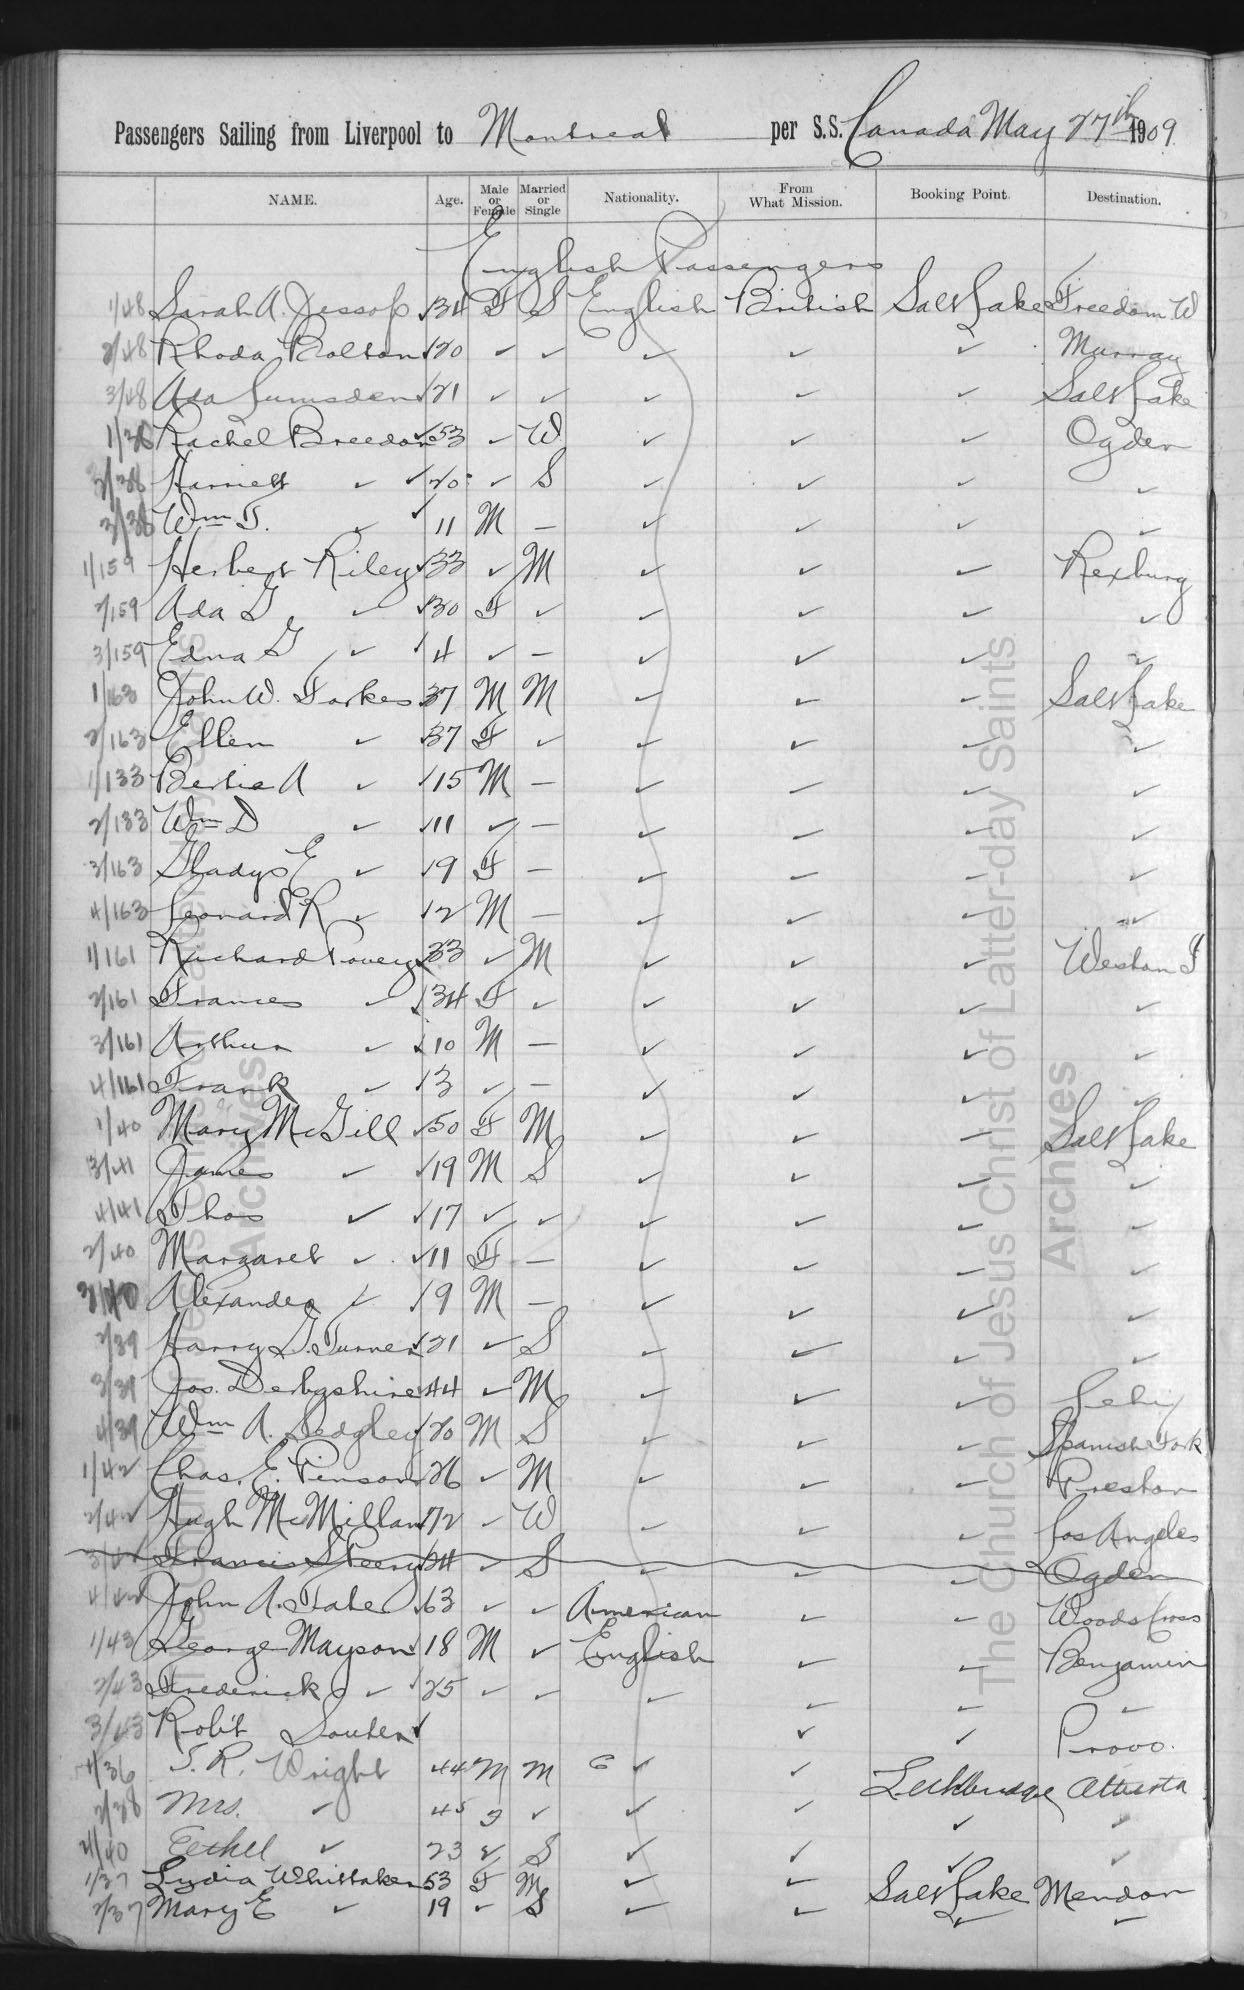 Passengers Sailing from Liverpool to Montreal per S.S. Canada May 27th 1909
NAME. Age. Male or Female Married or Single Nationality. From What Mission. Booking Point. Destination.
English Passengers
1/48 Sarah A. Jessop ✓34 F S English British Salt Lake Freedom W
2/48 Rhoda Bolton ✓20 ✓ ✓ ✓ ✓ ✓ Murray
3/48 Ada Lumsden ✓21 ✓ ✓ ✓ ✓ ✓ Salt Lake
1/38 Rachel Breedon ✓53 ✓ W ✓ ✓ ✓ Ogden
2/38 Harriett ✓ ✓20 ✓ S ✓ ✓ ✓ ✓
3/38 Wm T. ✓ ✓ 11 M — ✓ ✓ ✓ ✓
1/159 Herbert Riley ✓33 ✓ M ✓ ✓ ✓ Rexburg
2/159 Ada G ✓ ✓30 F ✓ ✓ ✓ ✓ ✓
3/159 Edna G ✓ ✓4 ✓ — ✓ ✓ ✓ ✓
1/163 John W. Forkes 37 M M ✓ ✓ ✓ Salt Lake
2/163 Ellen ✓ ✓37 F ✓ ✓ ✓ ✓ ✓
1/133 Bertie A ✓ ✓15 M — ✓ ✓ ✓ ✓
2/133 Wm D ✓ ✓11 ✓ — ✓ ✓ ✓ ✓
3/163 Gladys E ✓ ✓9 F — ✓ ✓ ✓ ✓
4/163 Leonard R ✓ ✓2 M — ✓ ✓ ✓ ✓
1/161 Richard Povey ✓33 ✓ M ✓ ✓ ✓ Weston I
2/161 Frances ✓ ✓34 F ✓ ✓ ✓ ✓ ✓
3/161 Arthur ✓ ✓10 M — ✓ ✓ ✓ ✓
4/161 Frank ✓ ✓3 ✓ — ✓ ✓ ✓ ✓
1/40 Mary McGill ✓50 F M ✓ ✓ ✓ Salt Lake
3/41 James ✓ ✓19 M S ✓ ✓ ✓ ✓
4/41 Thos ✓ ✓17 ✓ ✓ ✓ ✓ ✓ ✓
2/40 Margaret ✓ ✓11 F — ✓ ✓ ✓ ✓
3/40 Alexander ✓ ✓9 M — ✓ ✓ ✓ ✓
2/39 Harry G. Turner ✓21 ✓ S ✓ ✓ ✓ ✓
3/39 Jos. Derbyshire ✓44 ✓ M ✓ ✓ ✓ Lehi
4/39 Wm A. Sedgley ✓20 M S ✓ ✓ ✓ Spanish Fork
1/42 Chas. E. Pinson ✓26 ✓ M ✓ ✓ ✓ Preston
2/42 Hugh McMillan 72 ✓ W ✓ ✓ ✓ Los Angeles
3/42 Francis S Peery 24 ✓ S ✓ ✓ ✓ Ogden
4/42 John A. Tate ✓63 ✓ ✓ American ✓ ✓ Woods Cross
1/43 George Mayson ✓18 M ✓ English ✓ ✓ Benjamin
2/43 Frederick ✓ ✓25 ✓ ✓ ✓ ✓ ✓ ✓
3/43 Robt Souter ✓ ✓ ✓ Provo.
4/36 T. R. Wright 44 M M E ✓ ✓ Lethbridge Alberta
2/38 Mrs. ✓ 45 F ✓ ✓ ✓ ✓ ✓
4/40 Eethel ✓ 23 ✓ S ✓ ✓ ✓ ✓
1/37 Lydia Whittaker 53 F M ✓ ✓ Salt Lake Mendon
2/37 Mary E ✓ 19 ✓ S ✓ ✓ ✓ ✓
The Church of Jesus Christ of Latter-day Saints
Archives